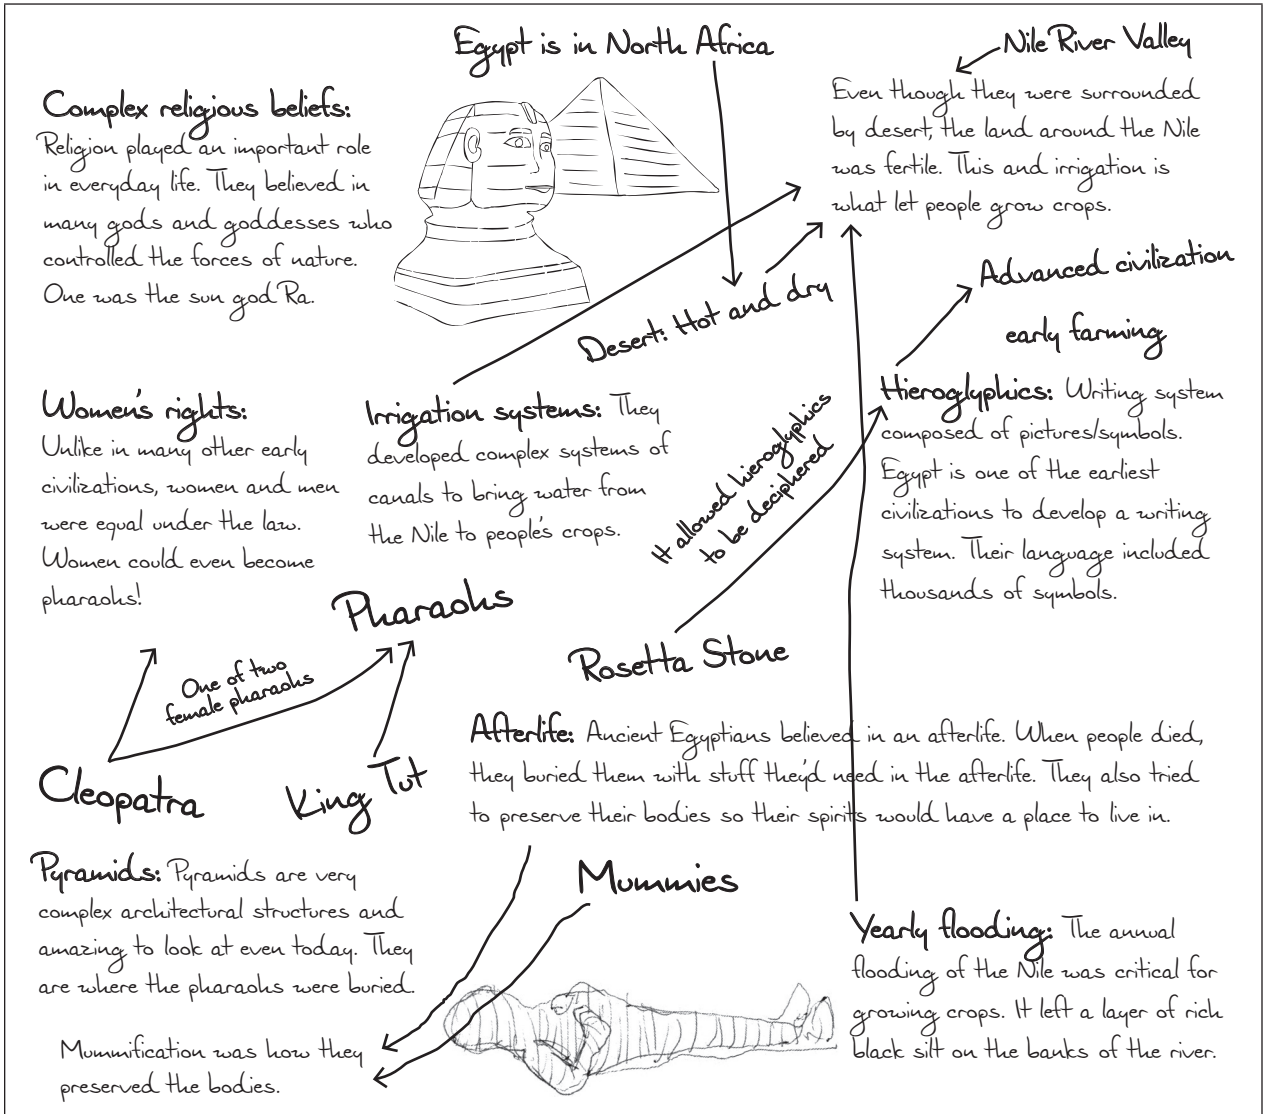 Egypt is in North Africa
Nile River Valley
Even though they were surrounded
by desert, the land around the Nile
was fertile. This and irrigation is
what let people grow crops.
Complex religious beliefs:
Religion played an important role
in everyday life. They believed in
many gods and goddesses who
controlled the forces of nature.
One was the sun god Ra.
Desert: Hot and dry
Advanced civilization
early farming
Women's rights:
Unlike in many other early
civilizations, women and men
were equal under the law.
Women could even become
pharaohs!
Irrigation systems: They
developed complex systems of
canals to bring water from
the Nile to people's crops.
It allowed hieroglyphics
to be deciphered
Hieroglyphics: Writing system
composed of pictures/symbols.
Egypt is one of the earliest
civilizations to develop a writing
system. Their language included
thousands of symbols.
Pharaohs
One of two
female pharaohs
Rosetta Stone
Cleopatra
King Tut
Afterlife: Ancient Egyptians believed in an afterlife. When people died,
they buried them with stuff they'd need in the afterlife. They also tried
to preserve their bodies so their spirits would have a place to live in.
Pyramids: Pyramids are very
complex architectural structures and
amazing to look at even today. They
are where the pharaohs were buried.
Mummies
Mummification was how they
preserved the bodies.
Yearly flooding: The annual
flooding of the Nile was critical for
growing crops. It left a layer of rich
black silt on the banks of the river.